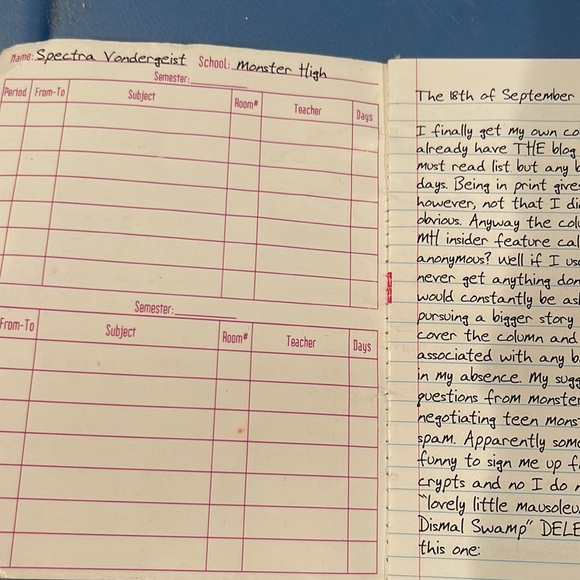 Name: Spectra Vondergeist School: Monster High
Semester:
Period From-To Subject Room# Teacher Days
Semester:
From-To Subject Room# Teacher Days
The 18th of September
I finally get my own co
already have THE blog
must read list but any b
days. Being in print give
however, not that I di
obvious. Anyway the colu
MH insider feature cal
anonymous? Well if I us
never get anything don
would constantly be as
pursuing a bigger story
cover the column and
associated with any b
in my absence. My sugg
questions from monster
negotiating teen monst
spam. Apparently som
funny to sign me up f
crypts and no I do n
"lovely little mausoleu
Dismal Swamp" DELE
this one: